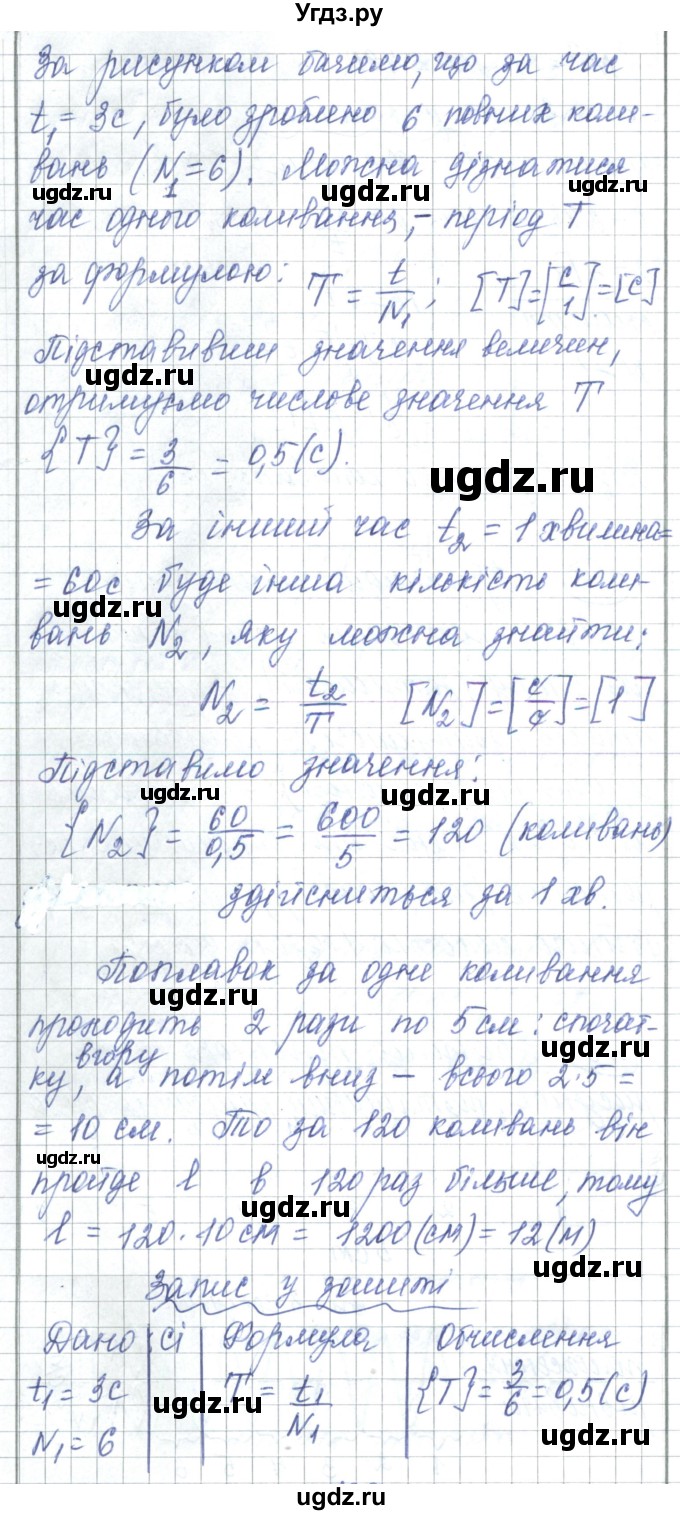 Угдз.ру
За рисунком бачимо, що за час
t₁ = 3с, було зроблено 6 повних коли-
вань (N₁ = 6). Можна дізнатися
час одного коливання, – період T
за формулою: T = t/N₁; [T] = [с/1] = [с]
Підставивши значення величин,
отримуємо числове значення T
{T} = 3/6 = 0,5 (с).
За інший час t₂ = 1 хвилина =
= 60с буде інша кількість коли-
вань N₂, яку можна знайти:
N₂ = t₂/T [N₂] = [с/с] = [1]
Підставимо значення:
{N₂} = 60/0,5 = 600/5 = 120 (коливань)
здійсниться за 1 хв.
Поплавок за одне коливання
проходить 2 рази по 5 см: спочат-
ку вгору, а потім вниз – всього 2·5 =
= 10 см. То за 120 коливань він
пройде l в 120 раз більше, тому
l = 120 · 10 см = 1200 (см) = 12 (м)
Запис у зошиті
Дано СІ Формула Обчислення
t₁ = 3с T = t₁/N₁ {T} = 3/6 = 0,5 (с)
N₁ = 6
ugdz.ru